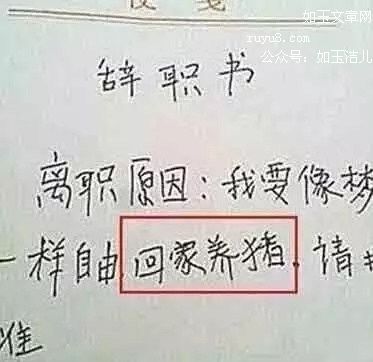 如玉文章网
ruyu3.com
公众号：如玉浩儿
辞职书
离职原因：我要像梦
一样自由回家养猪.请
准